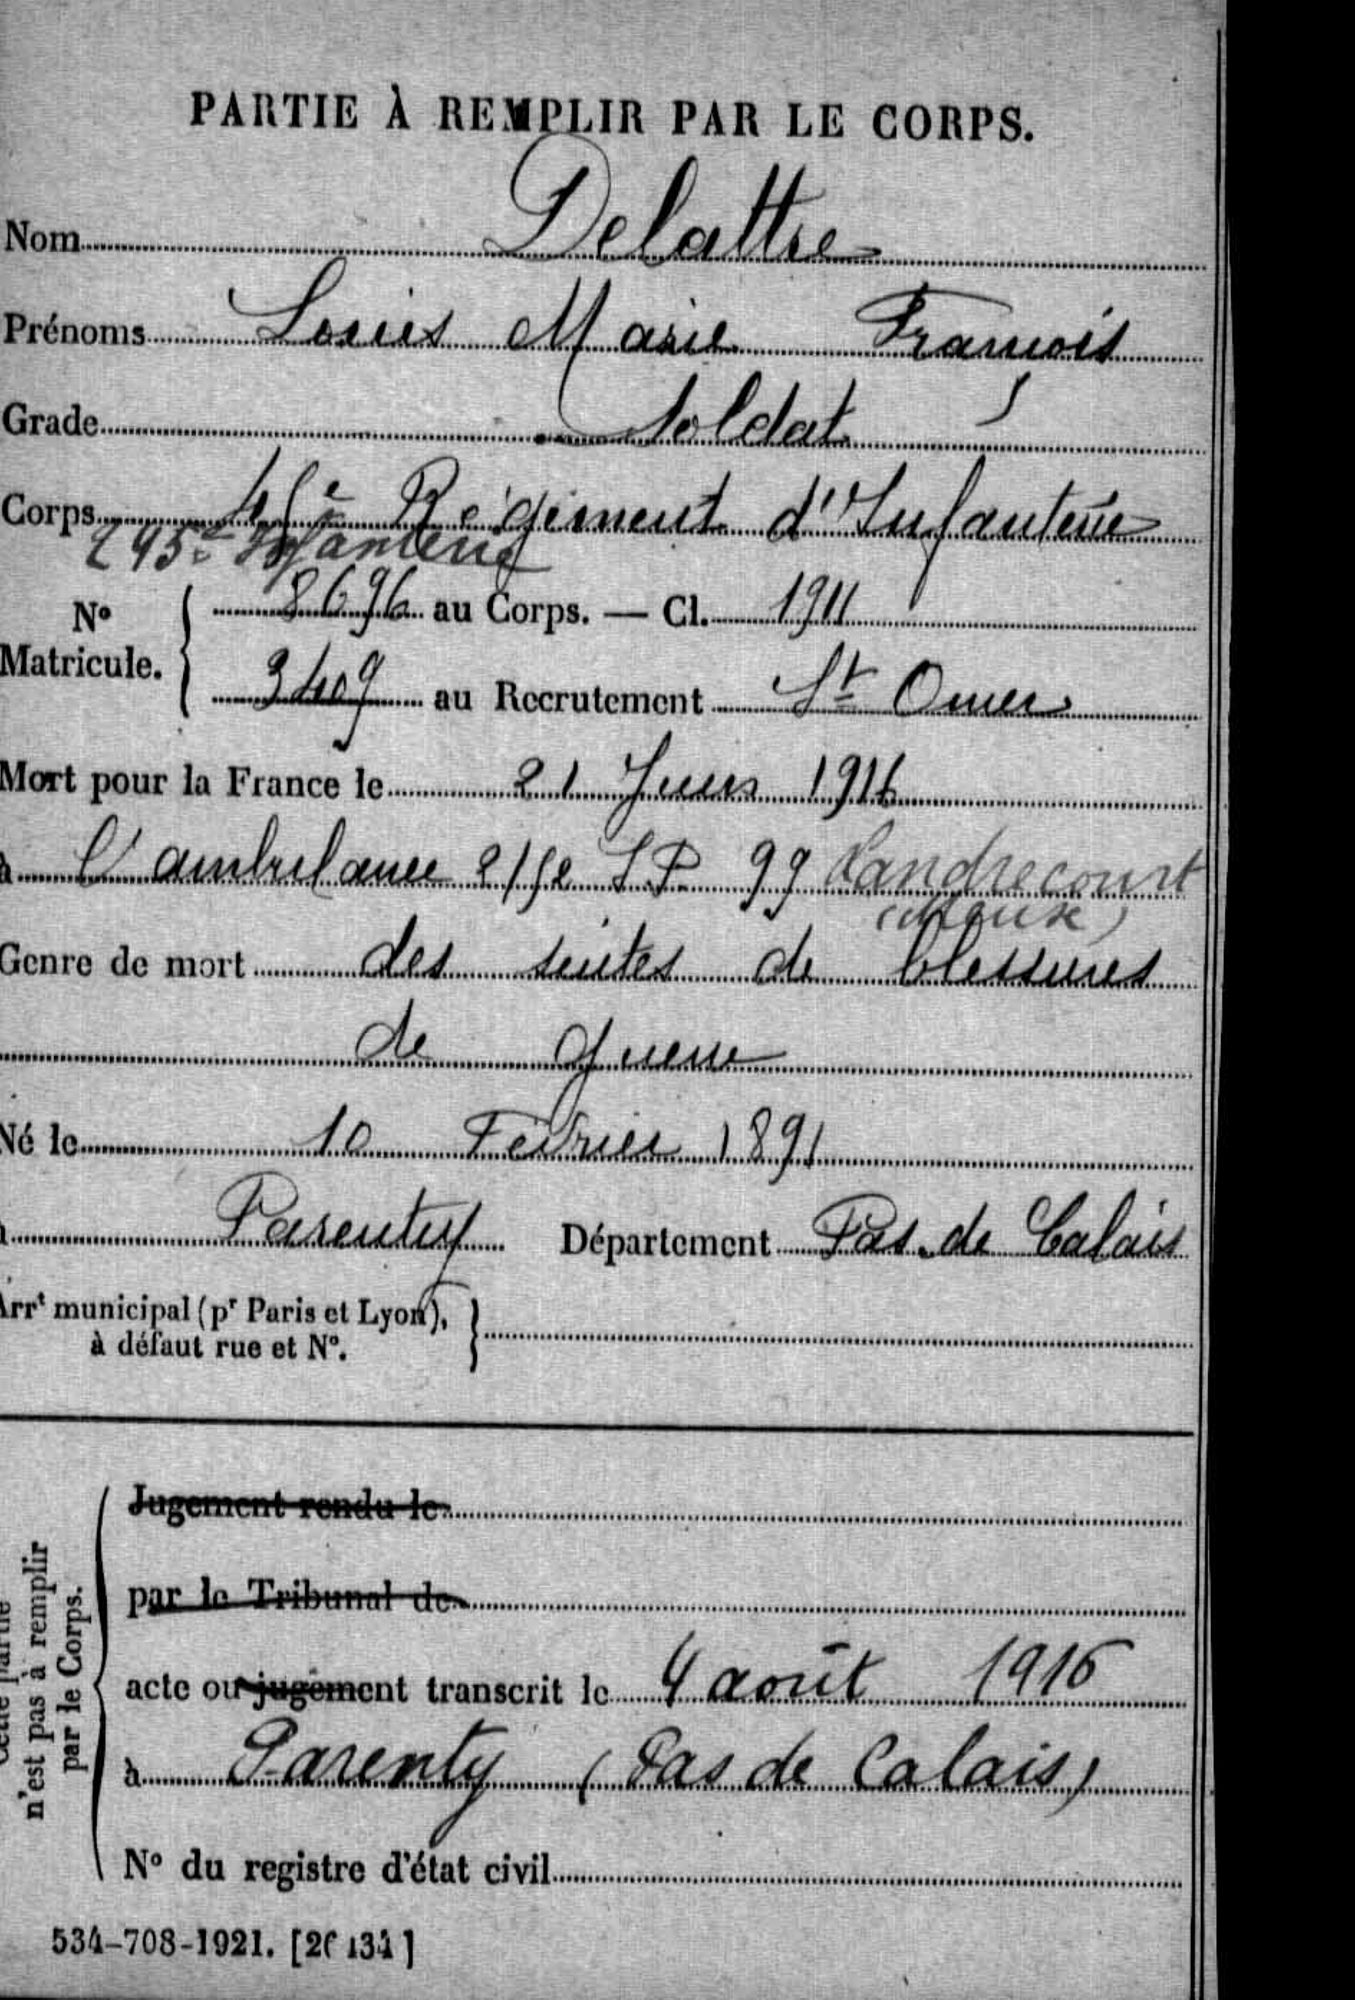 PARTIE À REMPLIR PAR LE CORPS.
Nom Delattre
Prénoms Louis Marie François
Grade Soldat
Corps Régiment d'Infanterie
245e Infanterie
No Matricule. 8696 au Corps. — Cl. 1911
3409 au Recrutement St Omer
Mort pour la France le 21 Juin 1916
à l'ambulance S.P. 99 Landrecourt
(Meuse)
Genre de mort des suites de blessures
de guerre
Né le 10 Février 1891
à Parenty Département Pas-de Calais
Arrt municipal (pr Paris et Lyon),
à défaut rue et No.
Cette partie
n'est pas à remplir
par le Corps.
Jugement rendu le
par le Tribunal de
acte ou jugement transcrit le 4 août 1916
à Parenty (Pas de Calais)
No du registre d'état civil
534-708-1921.